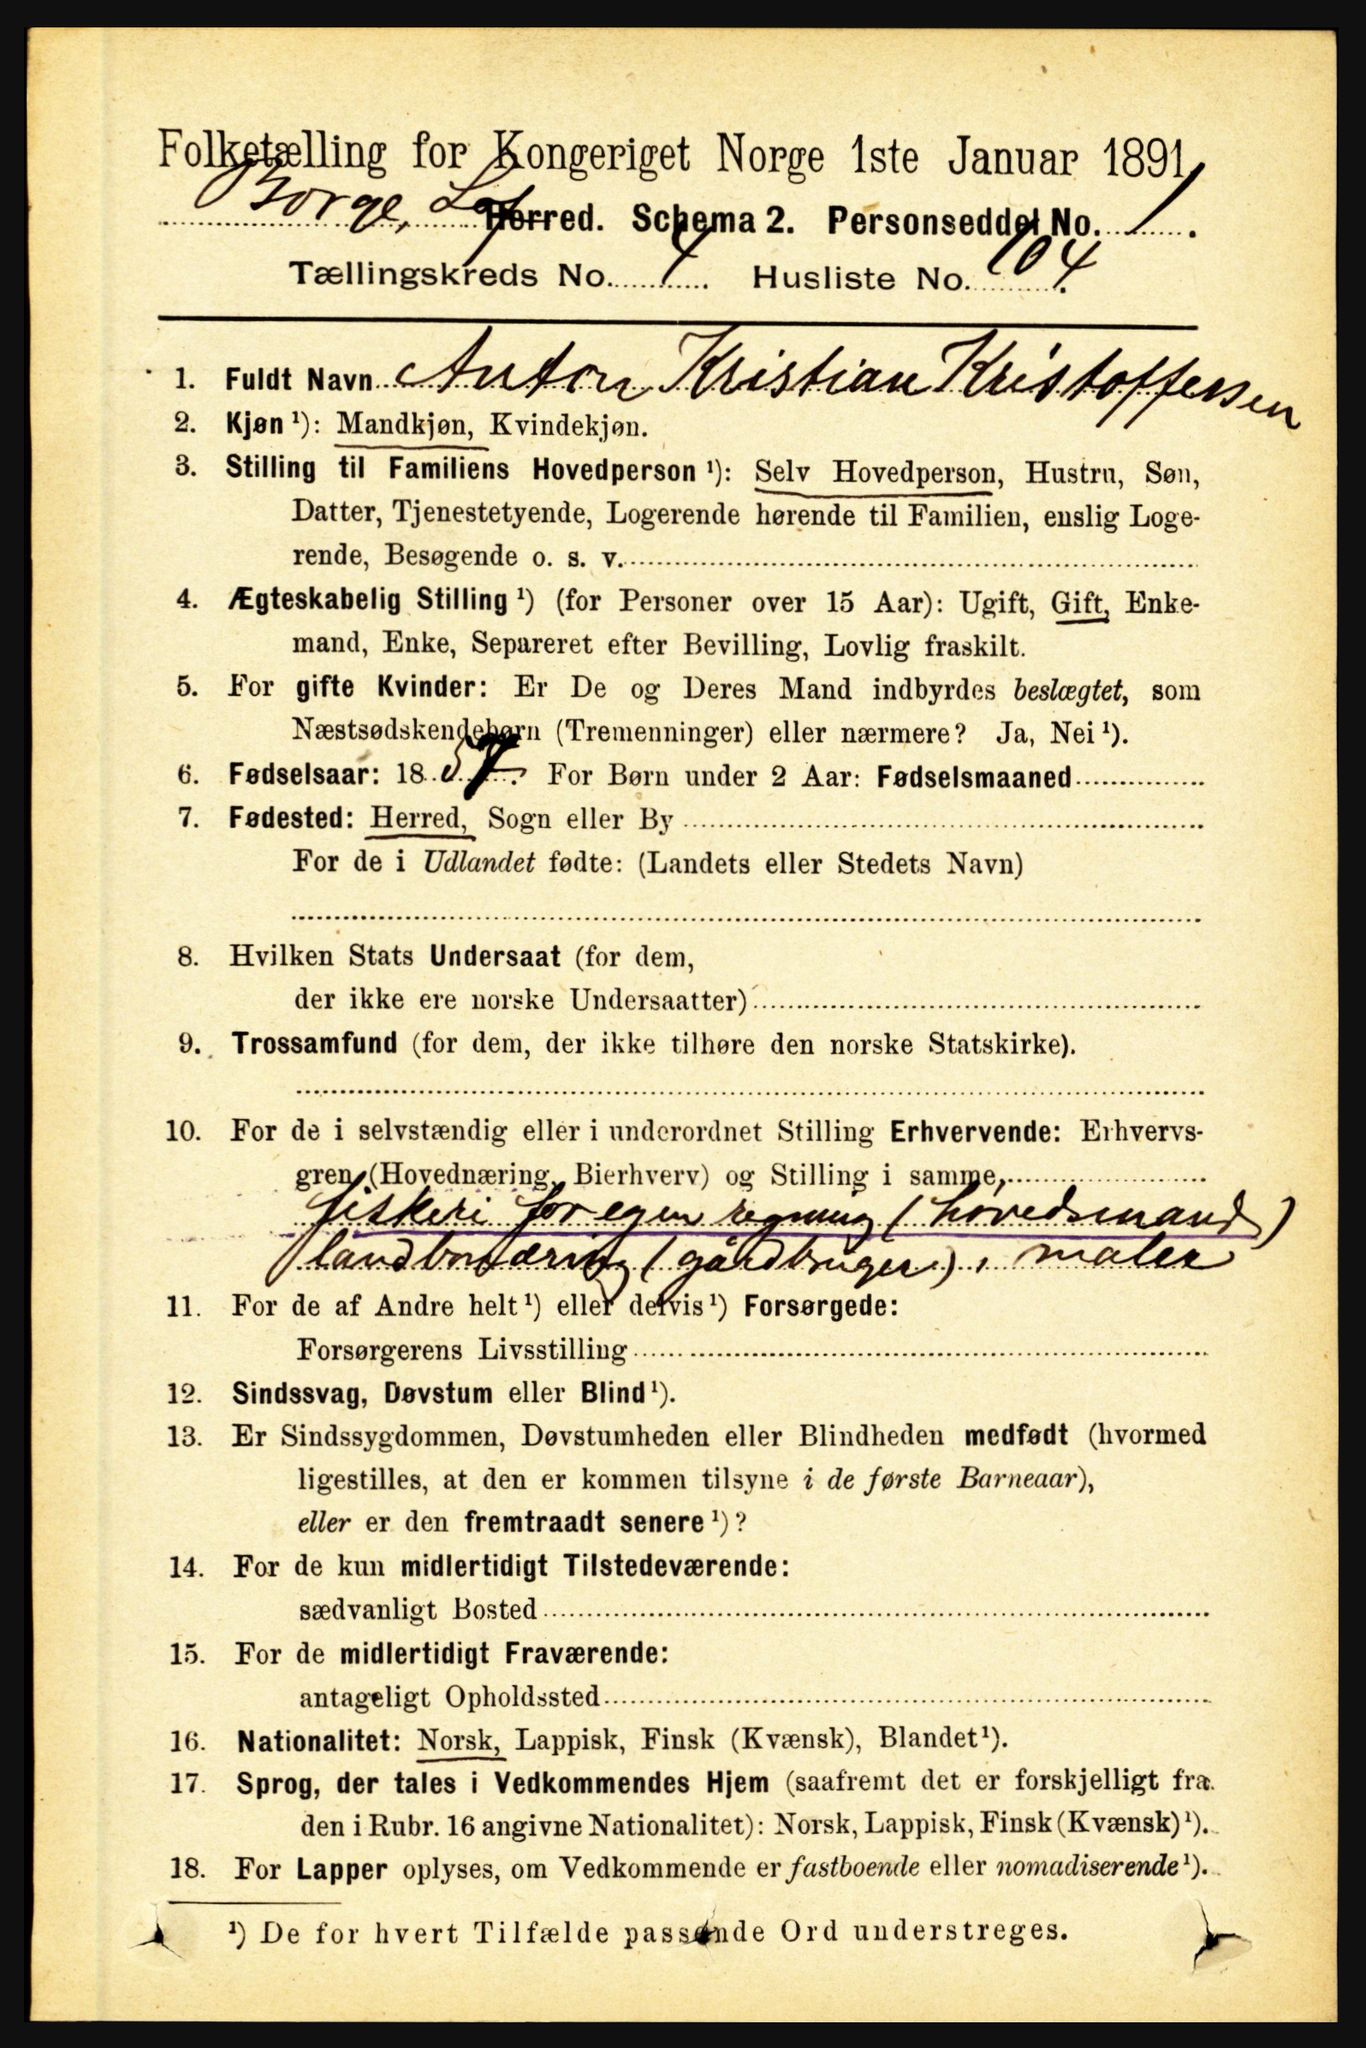 Folketælling for Kongeriget Norge 1ste Januar 1891.
Borge, Lof Herred. Schema 2. Personseddel No. 1.
Tællingskreds No. 4. Husliste No. 104.
1. Fuldt Navn Anton Kristian Kristoffersen
2. Kjøn ¹): Mandkjøn, Kvindekjøn.
3. Stilling til Familiens Hovedperson ¹): Selv Hovedperson, Hustru, Søn,
Datter, Tjenestetyende, Logerende hørende til Familien, enslig Loge-
rende, Besøgende o. s. v.
4. Ægteskabelig Stilling ¹) (for Personer over 15 Aar): Ugift, Gift, Enke-
mand, Enke, Separeret efter Bevilling, Lovlig fraskilt.
5. For gifte Kvinder: Er De og Deres Mand indbyrdes beslægtet, som
Næstsødskendebørn (Tremenninger) eller nærmere? Ja, Nei ¹).
6. Fødselsaar: 1857. For Børn under 2 Aar: Fødselsmaaned
7. Fødested: Herred, Sogn eller By
For de i Udlandet fødte: (Landets eller Stedets Navn)
8. Hvilken Stats Undersaat (for dem,
der ikke ere norske Undersaatter)
9. Trossamfund (for dem, der ikke tilhøre den norske Statskirke).
10. For de i selvstændig eller i underordnet Stilling Erhvervende: Erhvervs-
gren (Hovednæring, Bierhverv) og Stilling i samme,
fiskeri for egen regning (hovedsmand)
landbonæring (gårdbruger), maler
11. For de af Andre helt ¹) eller delvis ¹) Forsørgede:
Forsørgerens Livsstilling
12. Sindssvag, Døvstum eller Blind ¹).
13. Er Sindssygdommen, Døvstumheden eller Blindheden medfødt (hvormed
ligestilles, at den er kommen tilsyne i de første Barneaar),
eller er den fremtraadt senere ¹)?
14. For de kun midlertidigt Tilstedeværende:
sædvanligt Bosted
15. For de midlertidigt Fraværende:
antageligt Opholdssted
16. Nationalitet: Norsk, Lappisk, Finsk (Kvænsk), Blandet ¹).
17. Sprog, der tales i Vedkommendes Hjem (saafremt det er forskjelligt fra
den i Rubr. 16 angivne Nationalitet): Norsk, Lappisk, Finsk (Kvænsk) ¹).
18. For Lapper oplyses, om Vedkommende er fastboende eller nomadiserende ¹).
¹) De for hvert Tilfælde passende Ord understreges.